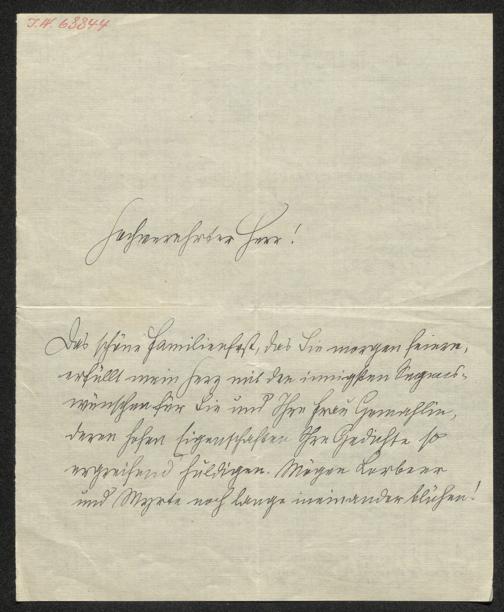 I.N. 63844
Hochverehrter Herr!
Das schöne Familienfest, das Sie morgen feiern,
erfüllt mein Herz mit den innigsten Segens-
wünschen für Sie und Ihre Frau Gemahlin,
deren hohen Eigenschaften Ihre Gedichte so
ergreifend huldigen. Mögen Lorbeer
und Myrte noch lange ineinander blühen!